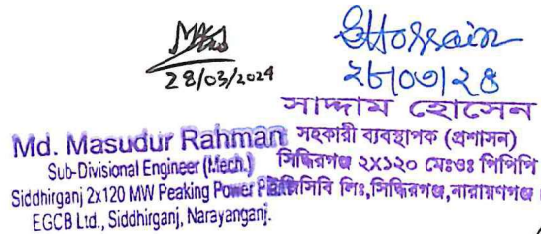 28/03/2024
Md. Masudur Rahman
Sub-Divisional Engineer (Mech.)
Siddhirganj 2x120 MW Peaking Power Plant
EGCB Ltd., Siddhirganj, Narayanganj.
SHossain
২৮/০৩/২৪
সাদ্দাম হোসেন
সহকারী ব্যবস্থাপক (প্রশাসন)
সিদ্ধিরগঞ্জ ২X১২০ মেঃওঃ পিপিপি
ইজিসিবি লিঃ,সিদ্ধিরগঞ্জ,নারায়ণগঞ্জ।